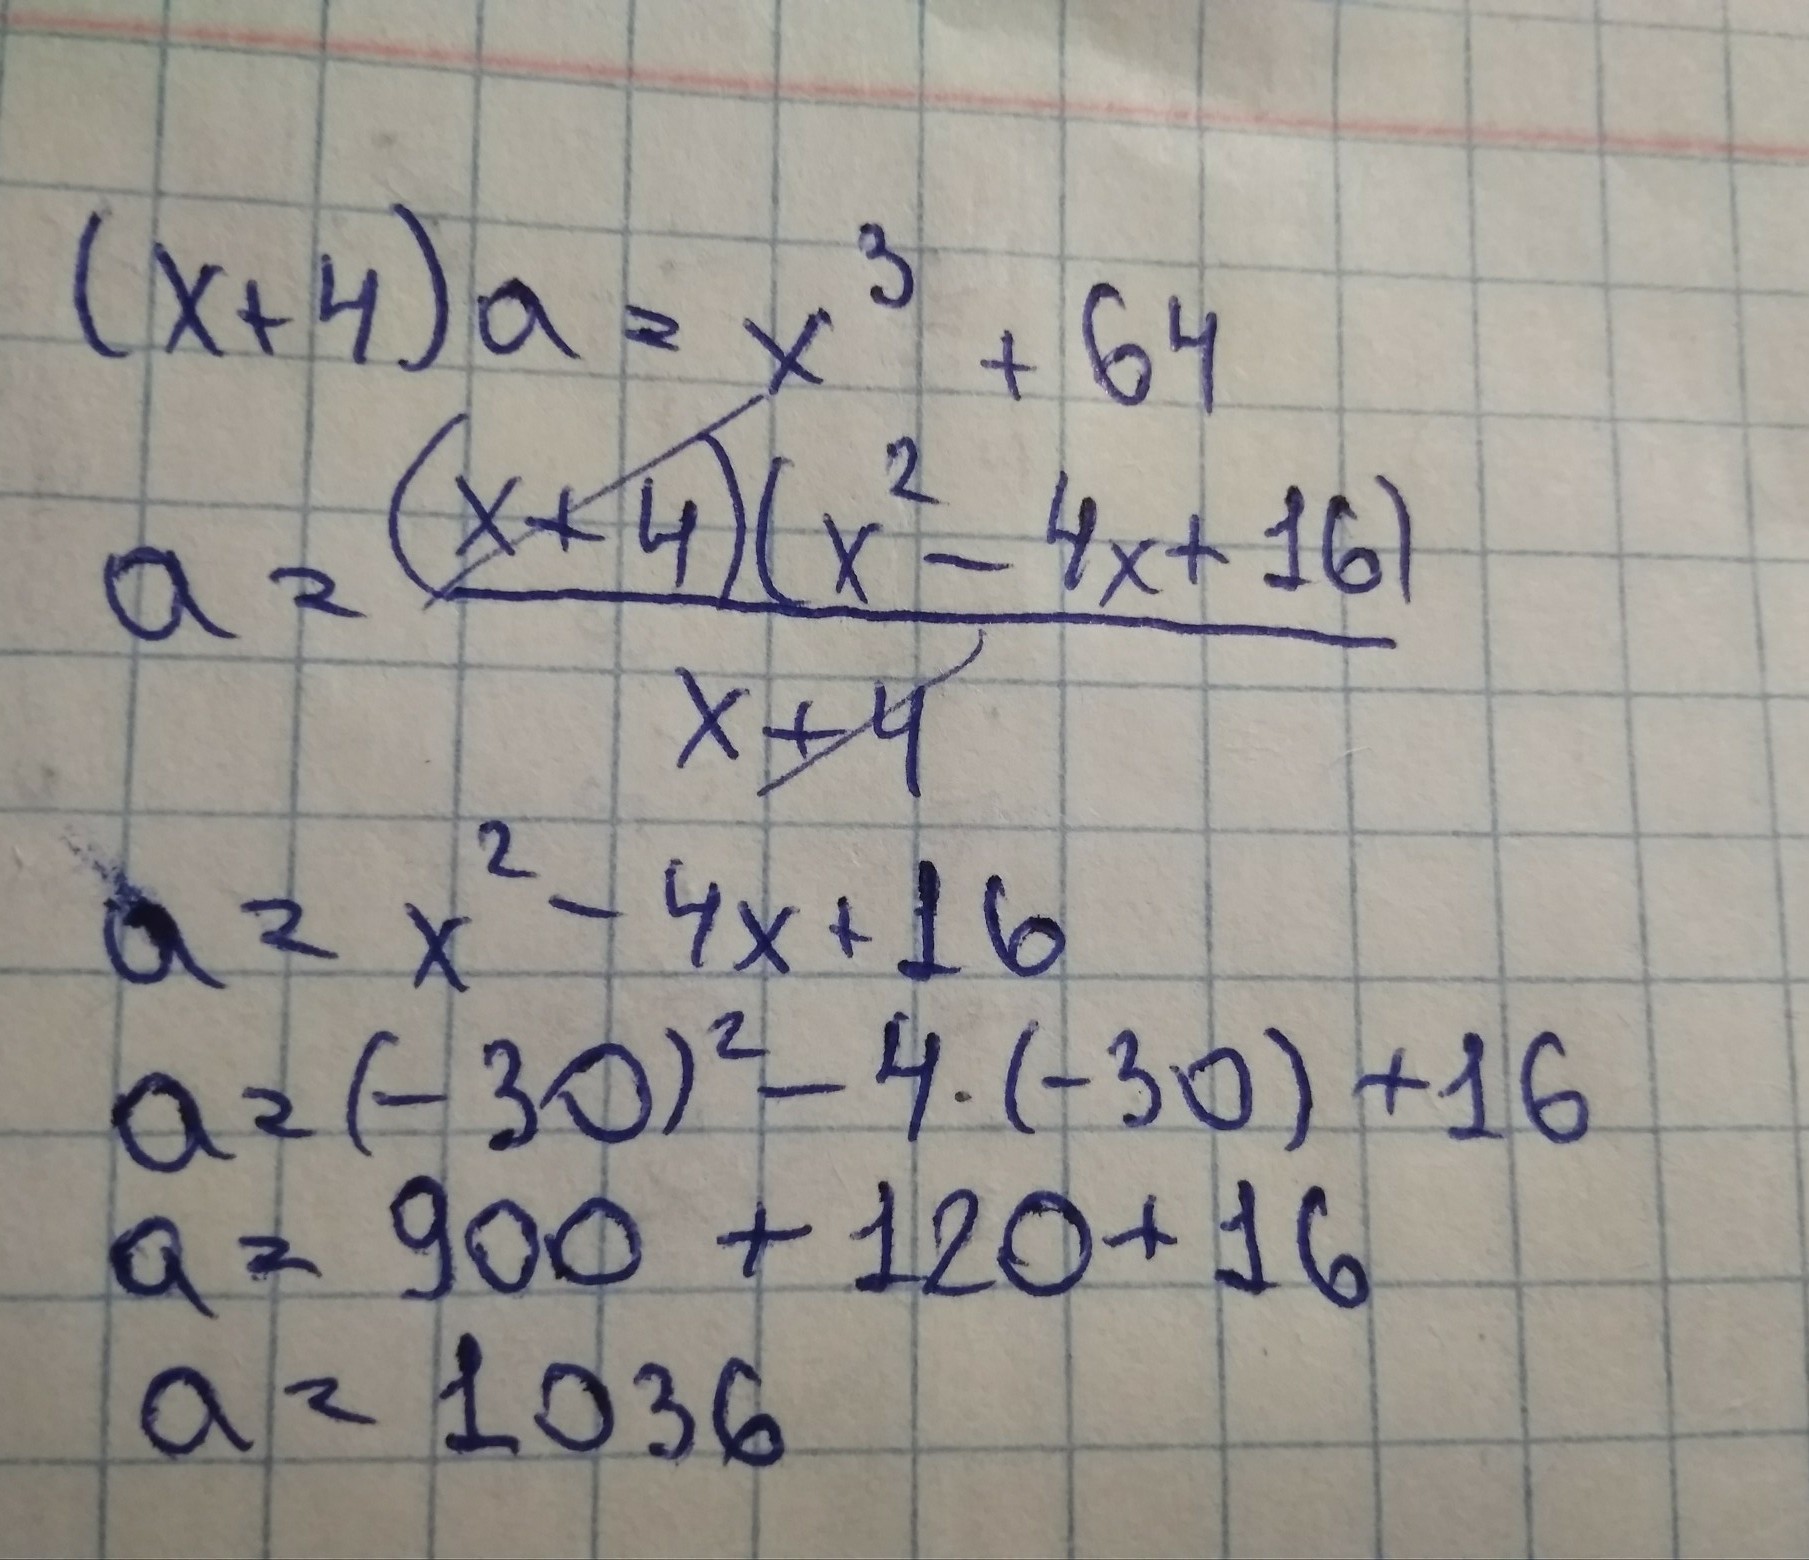 (x+4)a = x³ + 64
a = (x+4)(x² - 4x + 16)
x+4
a = x² - 4x + 16
a = (-30)² - 4 · (-30) + 16
a = 900 + 120 + 16
a = 1036